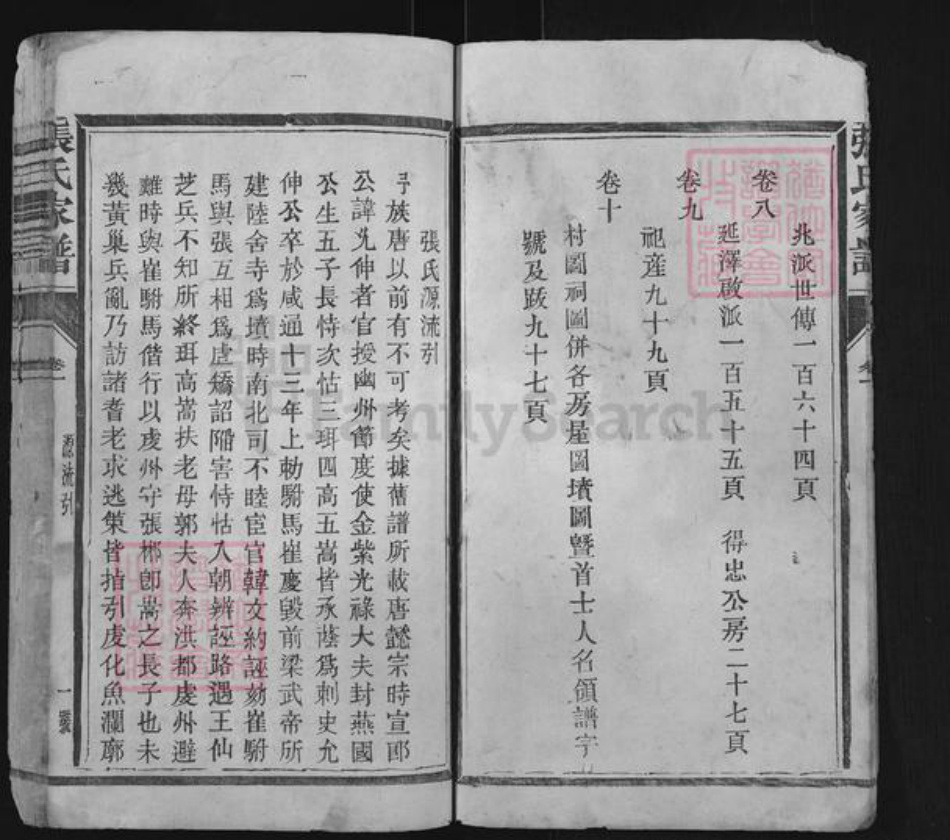 卷八
兆派世傳一百六十四頁
延澤啟派一百五十五頁 得忠公房二十七頁
卷九
祀產九十九頁
卷十
村圖祠圖併各房屋圖墳圖暨首士人名領譜字
號及跋九十七頁
張氏源流引
族唐以前有不可考矣據舊譜所載唐懿宗時宣郎
公諱允伸者官授幽州節度使金紫光祿大夫封燕國
公生五子長恃次怙三珥四高五嵩皆承蔭爲刺史允
伸公卒於咸通十三年上勅駙馬崔慶毀前梁武帝所
建陸舍寺爲墳時南北司不睦宦官韓文約誣劾崔駙
馬與張互相爲虐矯詔陷害恃怙入朝辨誣路遇王仙
芝兵不知所終珥高嵩扶老母郭夫人奔洪都虔州避
難時與崔駙馬偕行以虔州守張郴卽嵩之長子也未
幾黃巢兵亂乃訪諸耆老求逃策皆指引虔化魚瀾廓
張氏家譜
卷一
源流引
一
FamilySearch